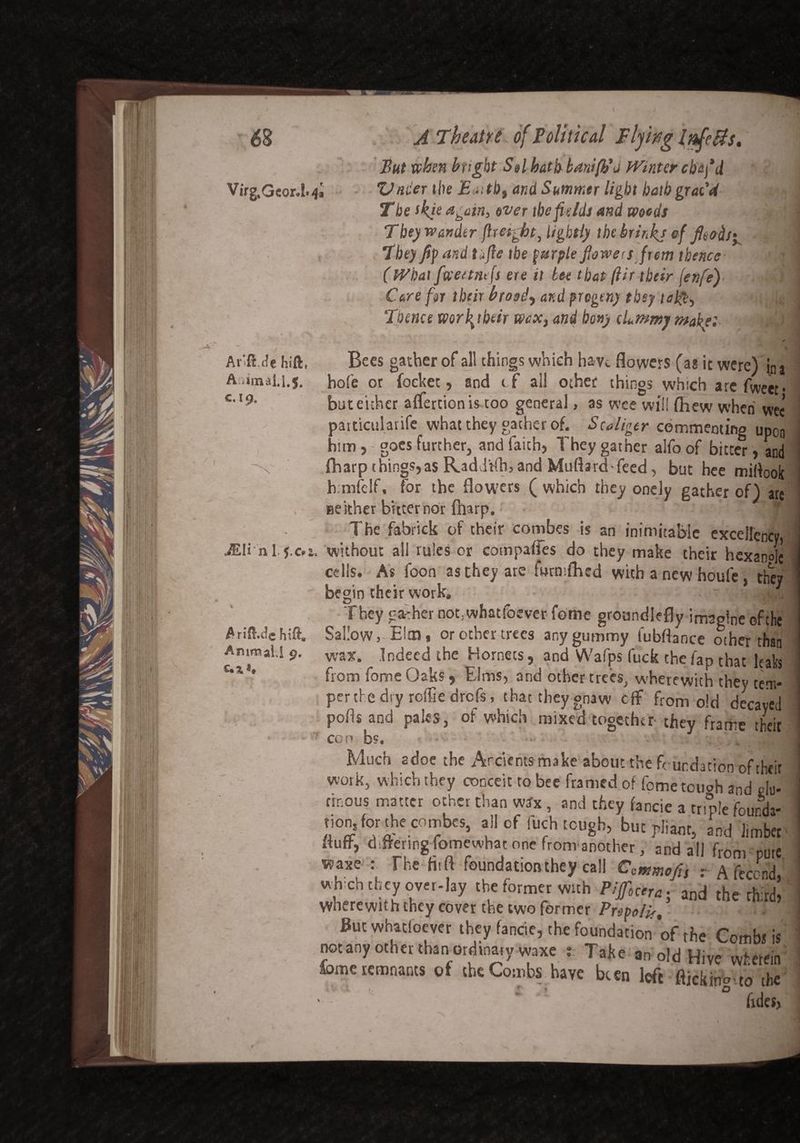 68 A Theatre of Political Flying Insects.
But when bright Sol hath banish'd Winter chas'd
Virg.Geor.l.4. Under the Earth, and Summer light hath grac'd
The skie again, over the fields and woods
They wander streight, lightly the brinks of floods;
They sip and taste the purple flowers from thence
(What sweetness ere it bee that stir their sense)
Care for their brood, and progeny they take,
Thence work their wax, and hony clammy make.
Arist.de hist. Bees gather of all things which have flowers (as it were) in a
Animal.l.5. hose or socket, and of all other things which are sweet;
c.19. but either assertion is too general, as wee will shew when wee
particularise what they gather of. Scaliger commenting upon
him, goes further, and saith, They gather also of bitter, and
sharp things, as Raddish, and Mustard-seed, but hee mistook
himself, for the flowers (which they onely gather of) are
neither bitter nor sharp.
The fabrick of their combes is an inimitable excellency,
Ælian l.5.c.2. without all rules or compasses do they make their hexangle
cells. As soon as they are furnished with a new house, they
begin their work.
They gather not, whatsoever some groundlesly imagine of the
Arist.de hist. Sallow, Elm, or other trees any gummy substance other than
Animal.l 9. wax. Indeed the Hornets, and Wasps suck the sap that leaks
from some Oaks, Elms, and other trees, wherewith they tem-
per the dry rossie dross, that they gnaw off from old decayed
posts and pales, of which mixed together they frame their
combs.
Much adoe the Ancients make about the foundation of their
work, which they conceit to bee framed of some tough and glu-
tinous matter other than wax, and they fancie a triple founda-
tion, for the combes, all of such tough, but pliant, and limber
stuff, differing somewhat one from another, and all from pure
waxe: The first foundation they call Commosis: A second,
which they over-lay the former with Pissocera; and the third,
wherewith they cover the two former Propolis.
But whatsoever they fancie, the foundation of the Combs is
not any other than ordinary waxe: Take an old Hive wherein
some remnants of the Combs have been left sticking to the
sides,